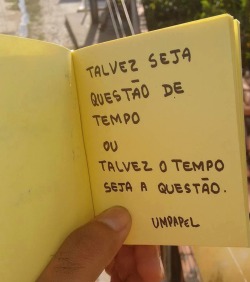 TALVEZ SEJA
QUESTÃO DE
TEMPO
OU
TALVEZ O TEMPO
SEJA A QUESTÃO.
UMPAPEL